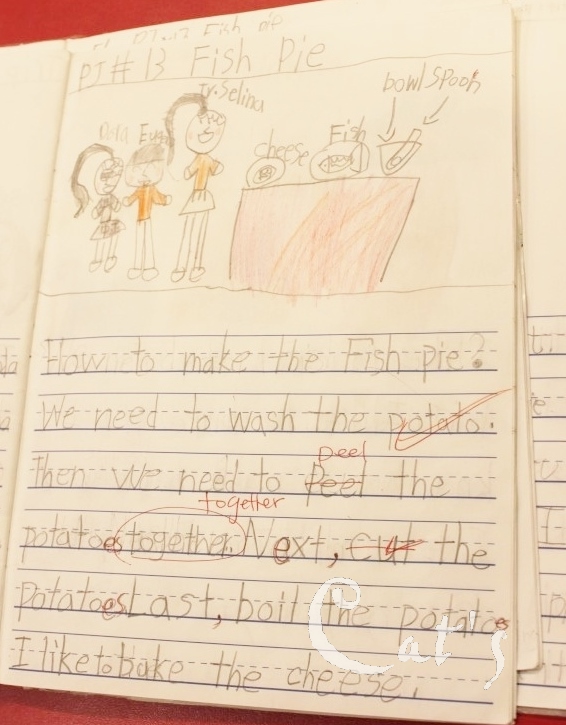 Fish pie
PJ# 13 Fish Pie
Tr. Selina
bowl spoon
Eva
cheese
Fish
How to make the Fish pie?
We need to wash the potato.
peel
Then we need to Peel the
together
potatoes together. Next, cut the
potatoes Last, boil the potatoes
I like to bake the cheese.
Cat's